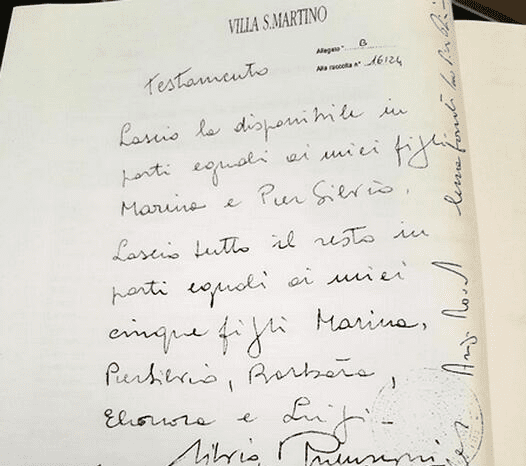 VILLA S.MARTINO
Allegato " B
Alla raccolta n° 16124
Testamento
Lascio la disponibile in
parti eguali ai miei figli
Marina e Pier Silvio.
Lascio tutto il resto in
parti eguali ai miei
cinque figli Marina,
PierSilvio, Barbara,
Eleonora e Luigi -
Silvio